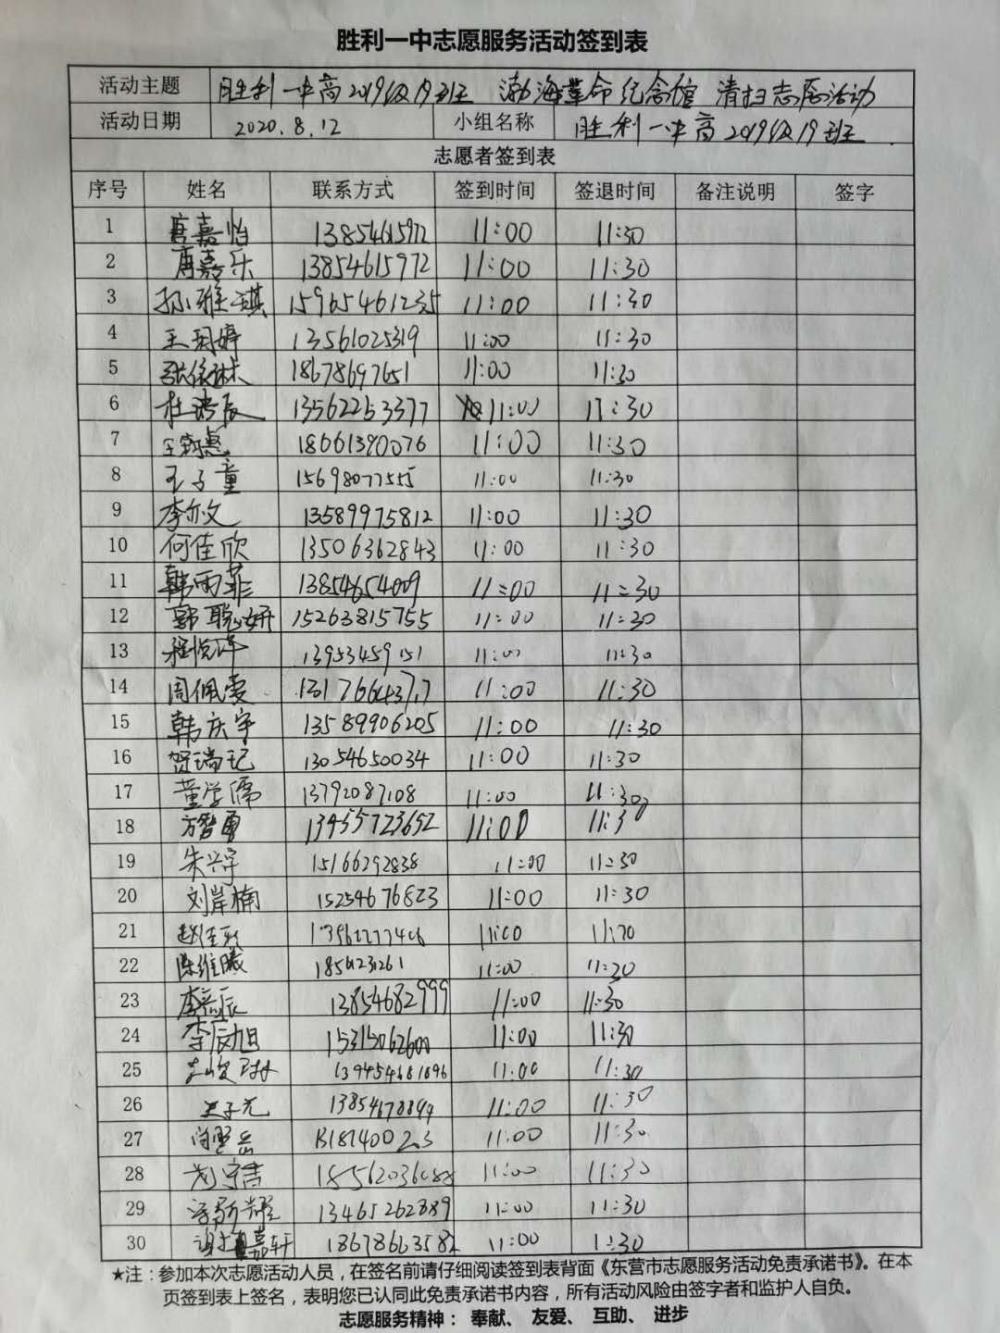 胜利一中志愿服务活动签到表
活动主题 胜利一中高2019级19班 渤海革命纪念馆 清扫志愿活动
活动日期 2020.8.12 小组名称 胜利一中高2019级19班
志愿者签到表
序号 姓名 联系方式 签到时间 签退时间 备注说明 签字
1 唐嘉怡 13854615972 11:00 11:30
2 唐嘉乐 13854615972 11:00 11:30
3 孙雅琪 15965461235 11:00 11:30
4 王玥婷 13561025319 11:00 11:30
5 18678697651 11:00 11:30
6 杜浩辰 13562253377 11:00 11:30
7 18661390076 11:00 11:30
8 王子童 15698077555 11:00 11:30
9 李亦文 13589975812 11:00 11:30
10 何佳欣 13506362843 11:00 11:30
11 韩雨菲 13854654009 11:00 11:30
12 郭聪妍 15263815755 11:00 11:30
13 程悦萍 13953459151 11:00 11:30
14 周佩雯 11:00 11:30
15 韩庆宇 13589906205 11:00 11:30
16 贺瑞记 13054650034 11:00 11:30
17 董学儒 13792087108 11:00 11:30
18 方智勇 13455723652 11:00 11:30
19 朱兴宇 15166292838 11:00 11:30
20 刘岸楠 15254676823 11:00 11:30
21 11:00
22 陈维曦 11:00 11:30
23 李嘉辰 13854682999 11:00 11:30
24 李辰旭 15315062600 11:00 11:30
25 11:00 11:30
26 11:00 11:30
27 11:00 11:30
28 11:00 11:30
29 13465262889 11:00 11:30
30 嘉轩 18678663582 11:00 11:30
★注：参加本次志愿活动人员，在签名前请仔细阅读签到表背面《东营市志愿服务活动免责承诺书》。在本
页签到表上签名，表明您已认同此免责承诺书内容，所有活动风险由签字者和监护人自负。
志愿服务精神： 奉献、 友爱、 互助、 进步